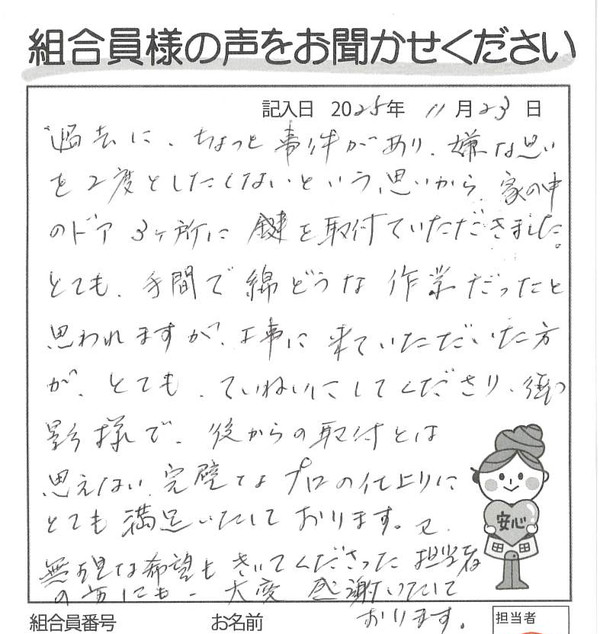 組合員様の声をお聞かせください
記入日 2025年 11月23日
過去に、ちょっと事件があり、嫌な思い
を2度としたくないという思いから、家の中
のドア3ヶ所に鍵を取付ていただきました。
とても、手間で綿どうな作業だったと
思われますが、工事に来ていただいた方
が、とても、ていねいにしてくださり、御
影様で、後からの取付とは
思えない、完璧なプロの仕上りに
とても満足いたしております。又、
無理な希望もきいてくださった担当者
の方にも、大変感謝いたして
おります。
安心
組合員番号 お名前 担当者